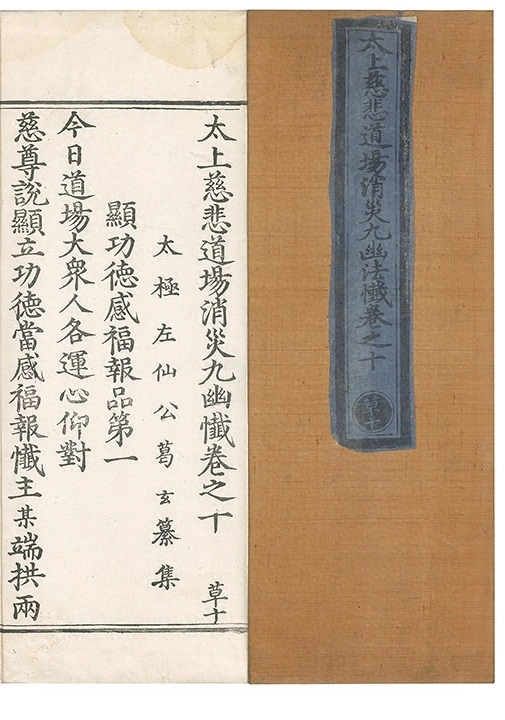 太上慈悲道場消災九幽法懺卷之十
草十
太上慈悲道場消災九幽懺卷之十 草十
太極左仙公葛玄纂集
顯功德感福報品第一
今日道場大衆人各運心仰對
慈尊說顯立功德當感福報懺主某端拱兩